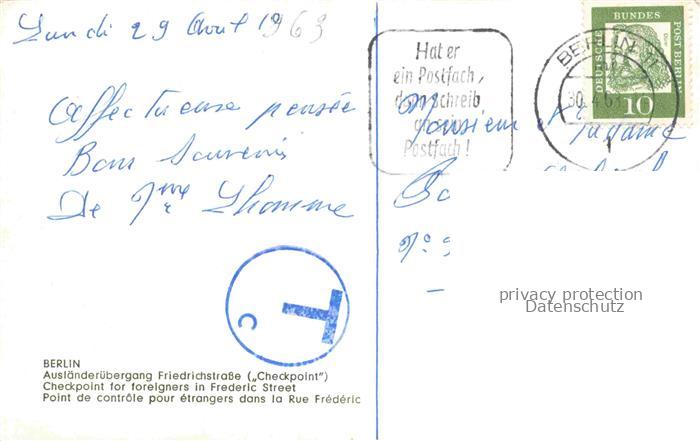 Lundi 29 Avril 1963
Affectueuse pensée
Bons Souvenirs
De Mme Lhomme
T
C
BERLIN
Ausländerübergang Friedrichstraße („Checkpoint")
Checkpoint for foreigners in Frederic Street
Point de contrôle pour étrangers dans la Rue Frédéric
Hat er
ein Postfach,
dann schreib
Postfach!
BERLIN
30.4.63
DEUTSCHE BUNDES POST BERLIN
10
Monsieur et Madame
privacy protection
Datenschutz